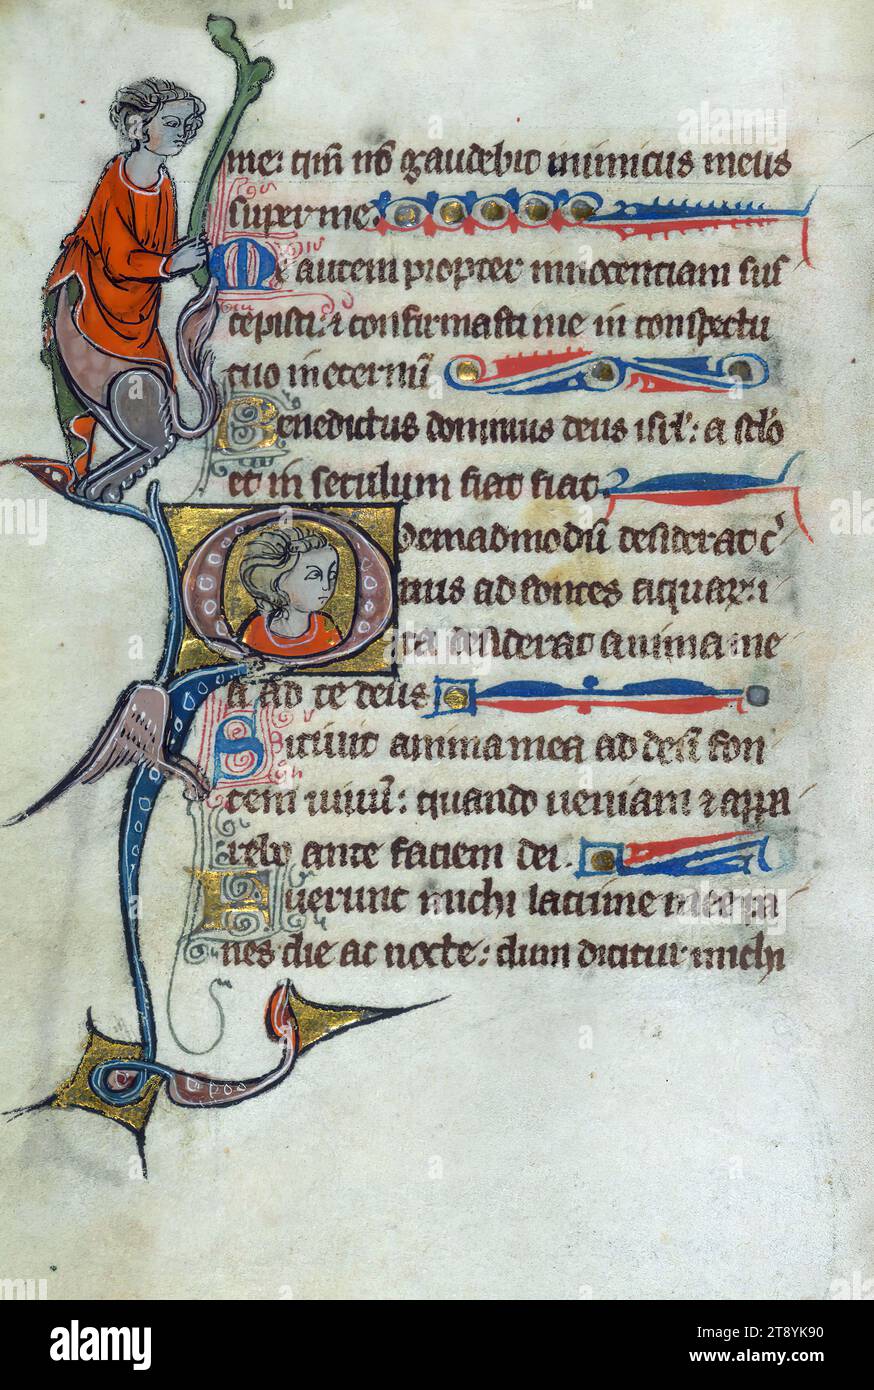 me: qm̄ nō gaudebit inimicus meus
super me.
Me autem propter innocentiam sus
cepisti: et confirmasti me in conspectu
tuo in eternū
Benedictus dominus deus isrl': a sclo
et in seculum fiat fiat.
Quemadmodū desiderat cer
uus ad fontes aquar: i
ta desiderat anima me
a ad te deus
Sitiuit anima mea ad deū fon
tem uiuū: quando ueniam et appa
rebo ante faciem dei.
Fuerunt michi lacrime mee pa
nes die ac nocte: dum dicitur michi
alamy
Image ID: 2T8YK90
www.alamy.com